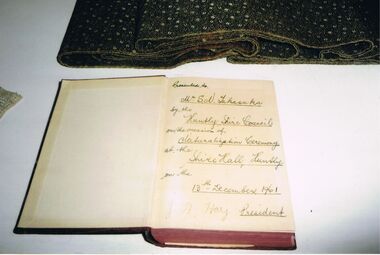 Presented to
Mr
by the
Huntly Shire Council
on the occasion of
Naturalization Ceremony
at the
Shire Hall, Huntly
on the
13th December
President